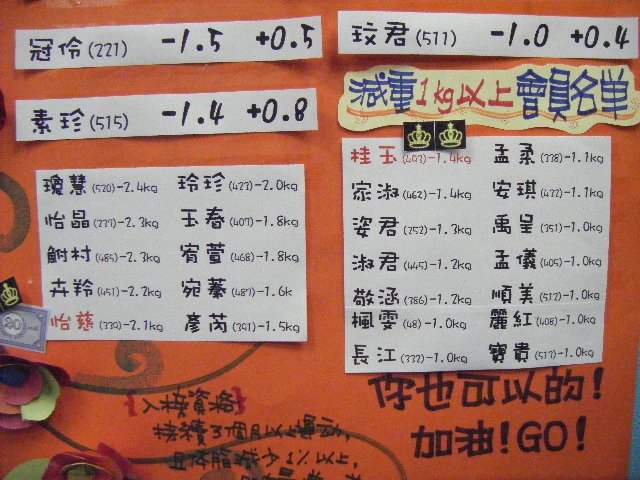 冠伶(221) -1.5 +0.5
素珍(515) -1.4 +0.8
瓊慧(520)-2.4kg 玲珍(423)-2.0kg
怡晶(277)-2.3kg 玉春(407)-1.8kg
村(485)-2.3kg 宥萱(468)-1.8kg
卉羚(451)-2.2kg 宛蓁(487)-1.6k
怡慈(339)-2.1kg 彥芮(391)-1.5kg
玟君(511) -1.0 +0.4
減重1kg以上會員名單
桂玉(403)-1.4kg 孟柔(378)-1.1kg
家淑(462)-1.4kg 安琪(432)-1.1kg
姿君(252)-1.3kg 禹呈(351)-1.0kg
淑君(445)-1.2kg 孟儀(405)-1.0kg
敬涵(386)-1.2kg 順美(512)-1.0kg
楓雯(48)-1.0kg 麗紅(408)-1.0kg
長江(332)-1.0kg 寶貴(513)-1.0kg
你也可以的!
加油!GO!
持續3個月以上運動,
且体脂減少1%以上,
20